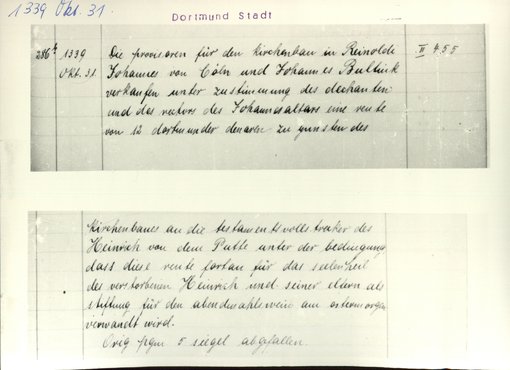 1339 Okt. 31.
Dortmund Stadt
286a 1339 Die provisoren für den kirchenbau in Reinolde II 455
Okt. 31. Johannes von Cöln und Johannes Bultink
verkaufen unter zustimmung des dechanten
und des rectors des Johannesaltars eine rente
von 12 dortmunder denaren zu gunsten des
kirchenbaues an die testamentsvollstreker des
Heinrich von dem Putte unter der bedingung
dass diese rente fortan für das seelenheil
des verstorbenen Heinrich und seiner eltern als
stiftung für den abendmahlswein am ostermorgen
verwandt wird.
Orig pgm 5 siegel abgefallen.